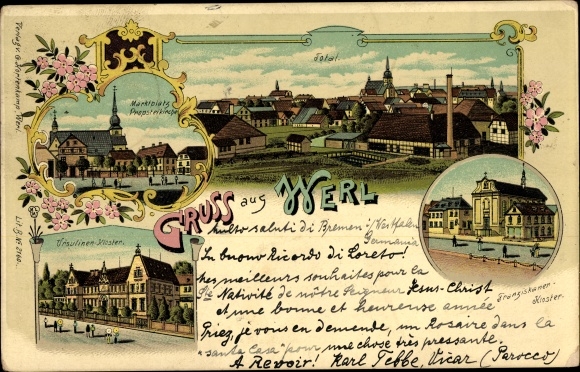 Verlag v. G. Hartenkamp, Werl.
Marktplatz
Propsteikirche
Total.
GRUSS aus WERL
Ursulinen-Kloster.
Franziskaner-
Kloster.
Lit. B. № 2160.
molto saluti di Bremen: /Westfalen
Germania
In buono Ricordo di Loreto!
Mes meilleurs souhaites pour la
Ste Nativité de nôtre Seigneur Jesus-Christ
et une bonne et heureuse année
Priez, je vous en demende, un Rosaire dans la
"santa Casa" pour une chose très pressante.
A Revoir! Karl Tebbe, Vicar (Parocco)